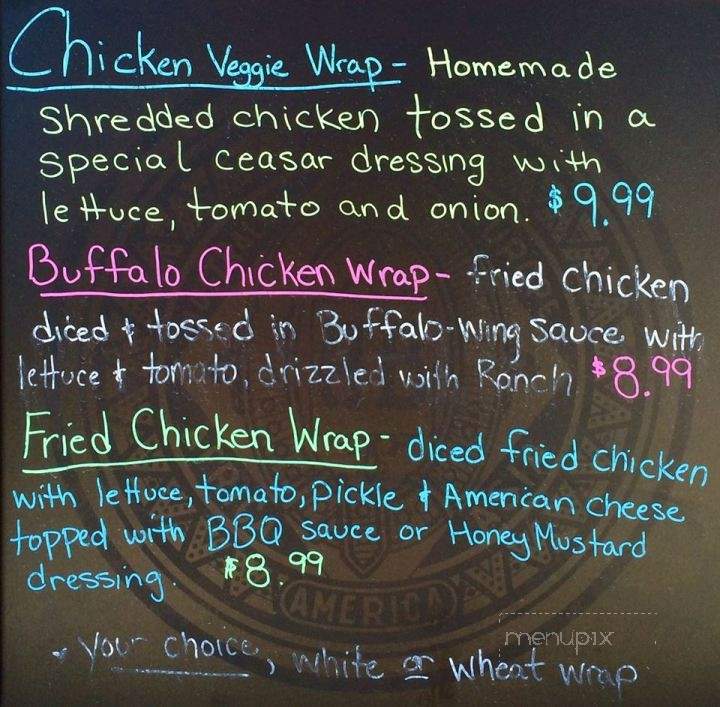 Chicken Veggie Wrap - Homemade
shredded chicken tossed in a
special ceasar dressing with
lettuce, tomato and onion. $9.99
Buffalo Chicken Wrap - fried chicken
diced & tossed in Buffalo-Wing Sauce with
lettuce & tomato, drizzled with Ranch $8.99
Fried Chicken Wrap - diced fried chicken
with lettuce, tomato, pickle & American cheese
topped with BBQ sauce or Honey Mustard
dressing. $8.99
AMERICA
menupix
* your choice, white or wheat wrap